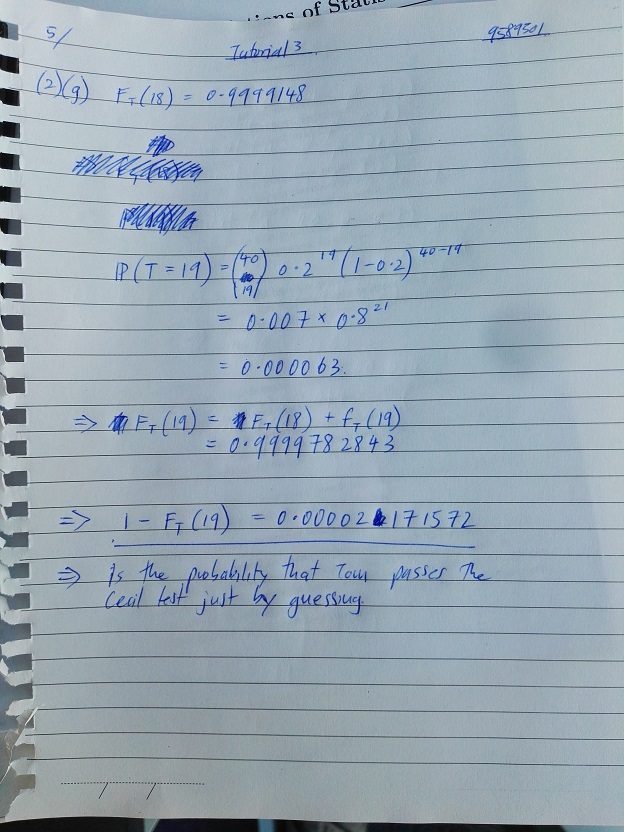 tions of Statis
5/
Tutorial 3
9589501
(2)(g) F_T(18) = 0.9999148
P(T = 19) = (40 19) 0.2^19 (1-0.2)^40-19
= 0.007 × 0.8^21
= 0.000063.
⇒ F_T(19) = F_T(18) + f_T(19)
= 0.9999782843
⇒ 1 - F_T(19) = 0.00002171572
⇒ is the probability that Tom passes the
Cecil test just by guessing